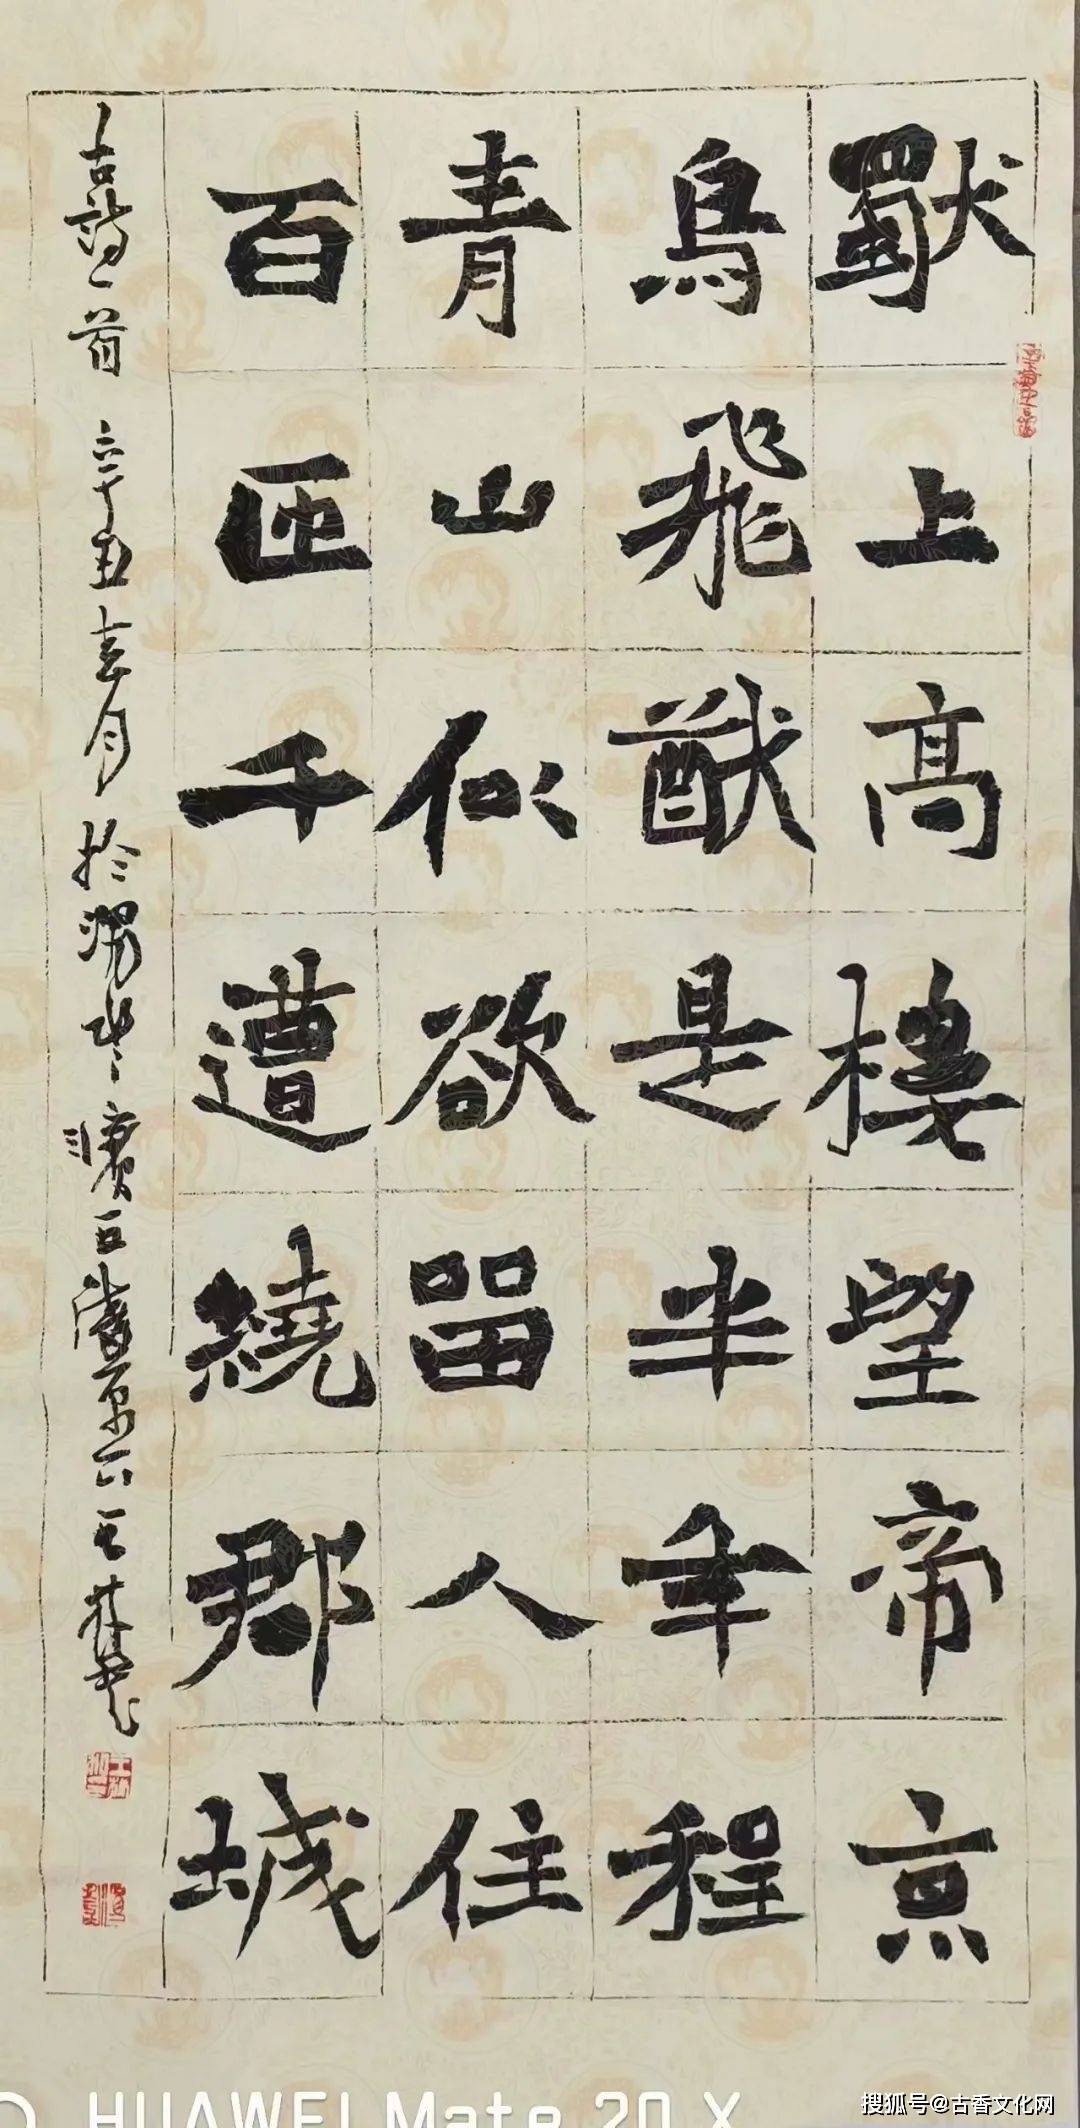 獨上高樓望帝京
鳥飛猶是半年程
青山似欲留人住
百匝千遭繞郡城
古詩一首 辛丑 月於
HUAWEI Mate 20 X
搜狐号@古香文化网